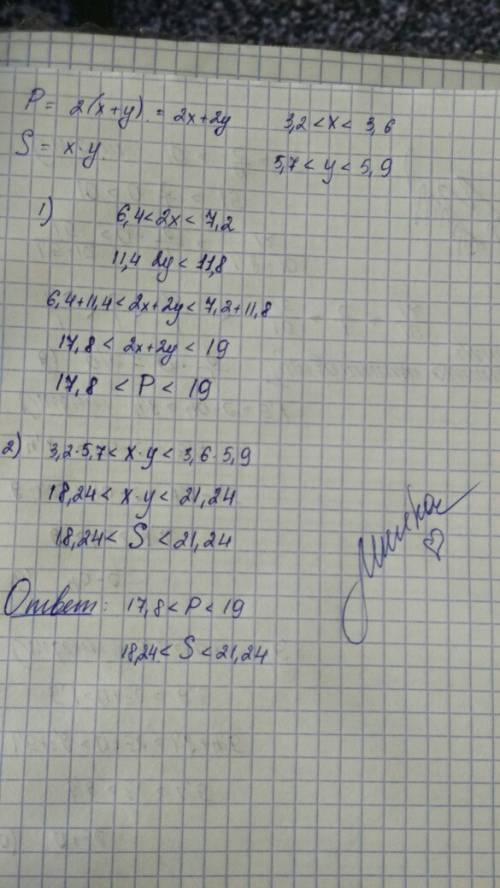 P = 2(x+y) = 2x+2y 3,2 < x < 3,6
S = x·y. 5,7 < y < 5,9
1) 6,4 < 2x < 7,2
11,4 2y < 11,8
6,4+11,4 < 2x+2y < 7,2+11,8
17,8 < 2x+2y < 19
17,8 < P < 19
2) 3,2·5,7 < x·y < 3,6·5,9
18,24 < x·y < 21,24
18,24 < S < 21,24
Ответ: 17,8 < P < 19
18,24 < S < 21,24